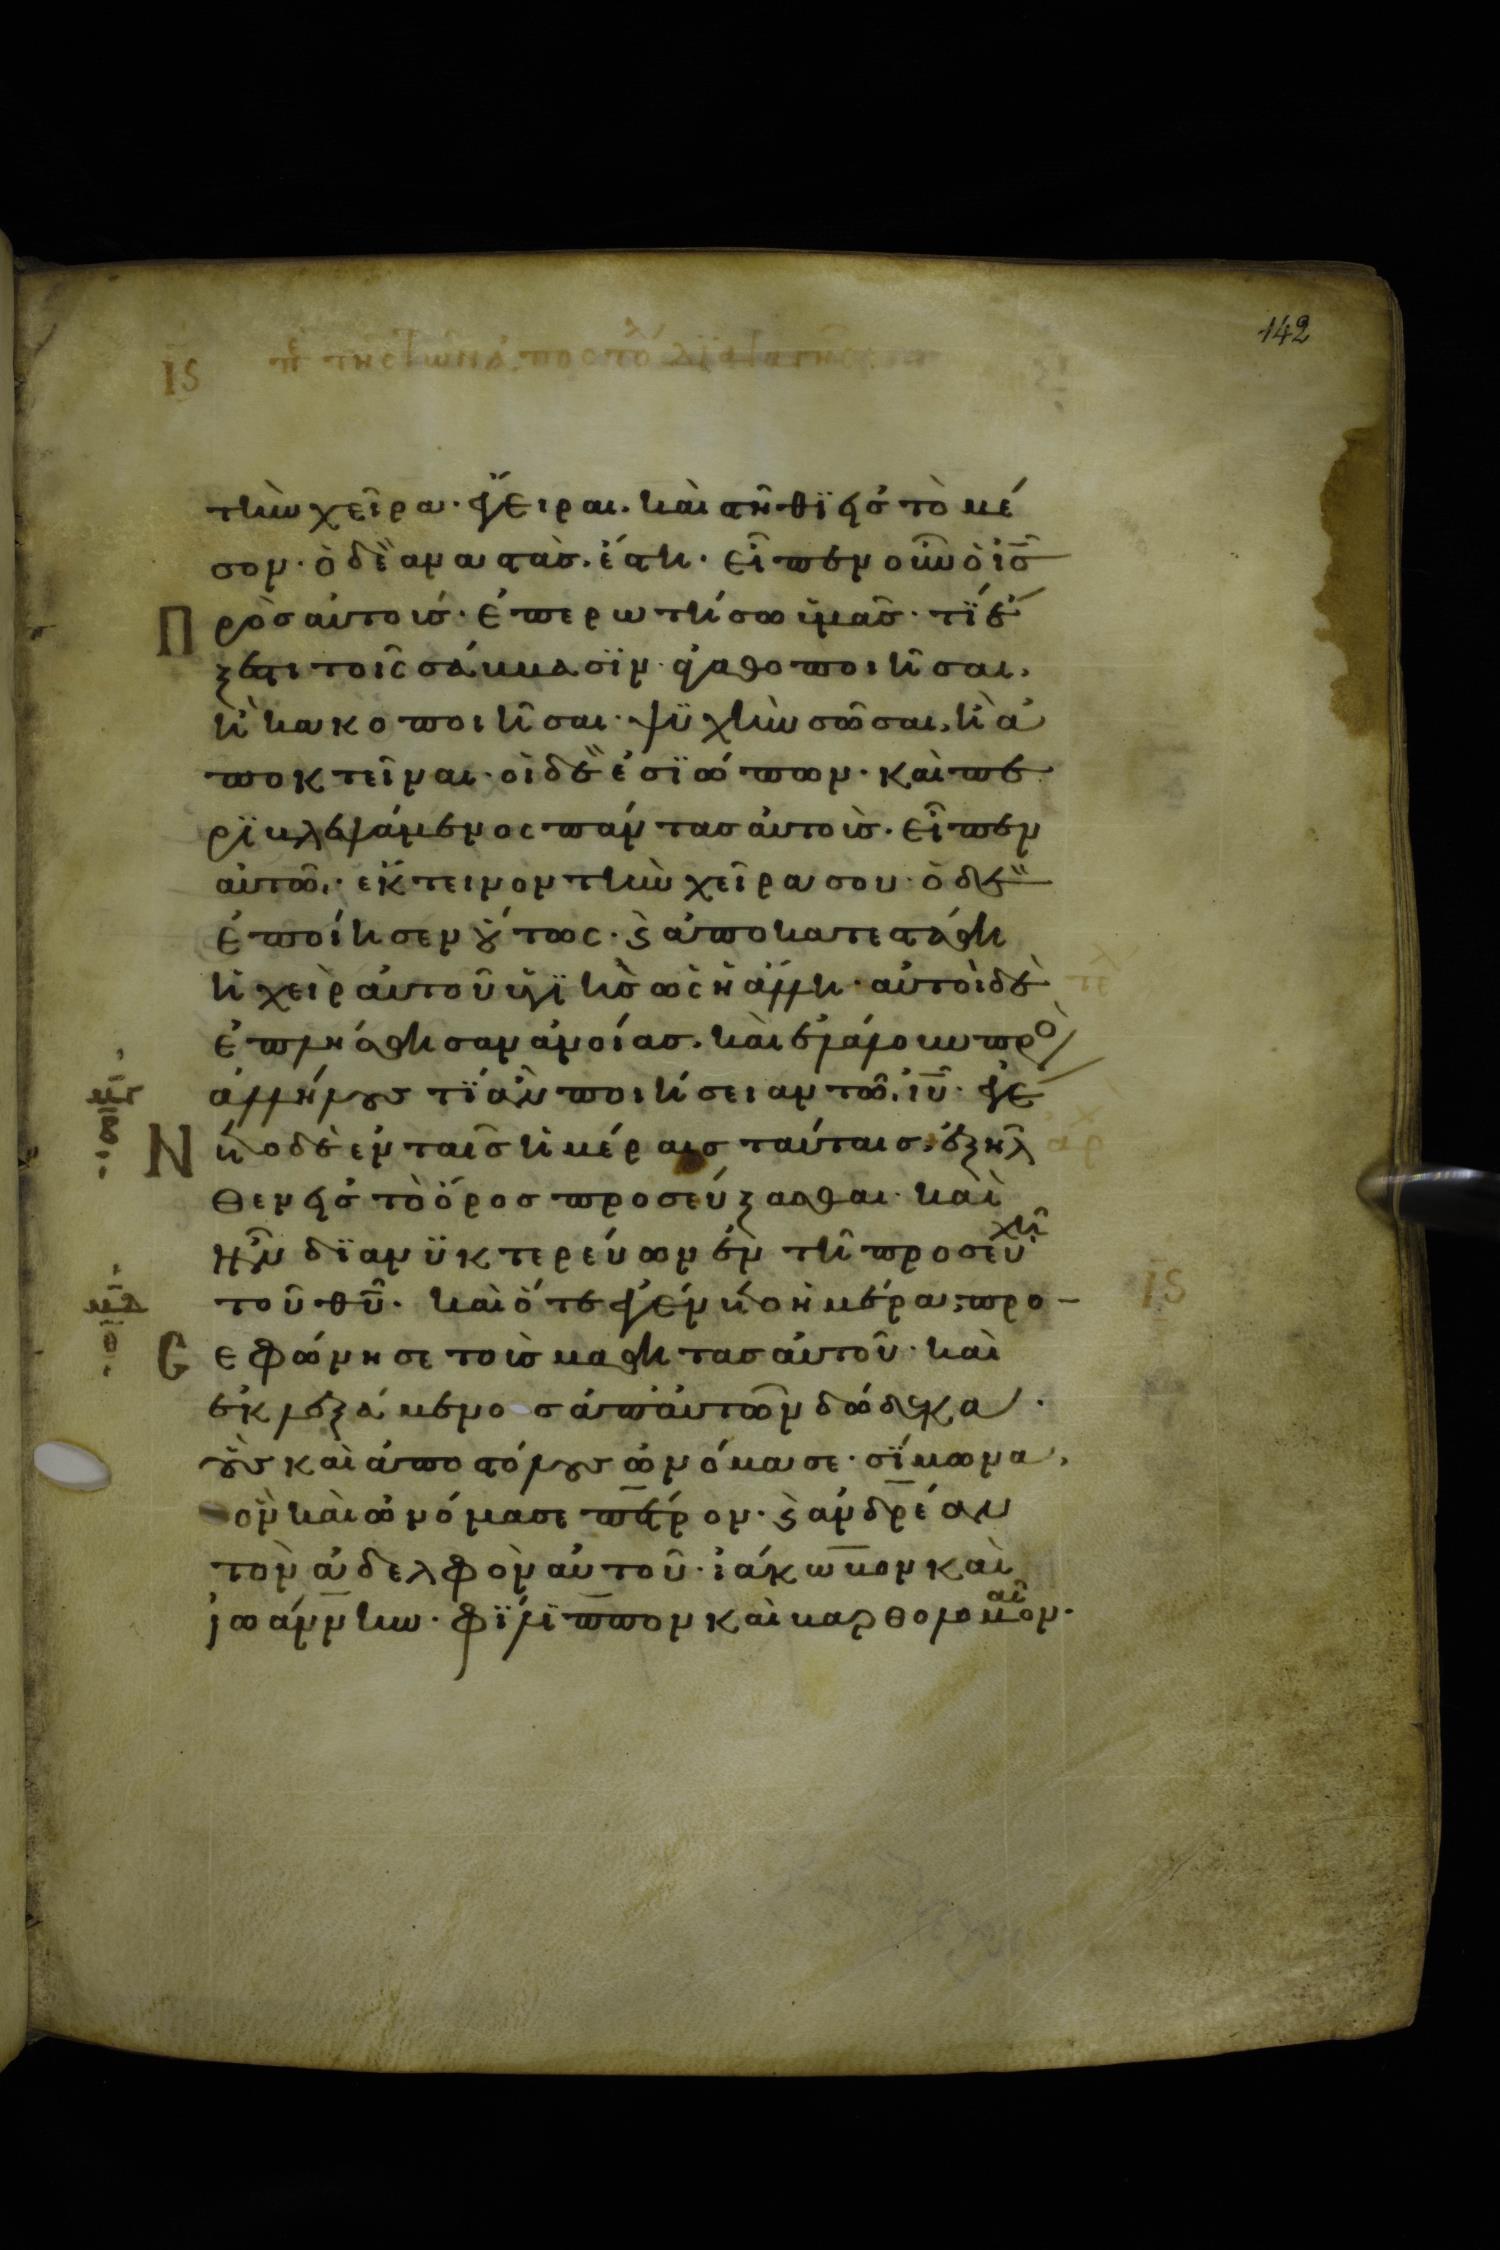 142
ΙϚ
τὴν χεῖρα· ἔγειραι. καὶ στῆθϊ εἰς τὸ μέ
σον· ὁ δὲ ἀναστὰς. ἔστη· εἶπεν οὖν ὁ ἰ̅ς̅
Πρὸς αὐτούς· ἐπερωτήσω ὑμᾶς· τί ἔ
ξεστι τοῖς σάββασϊν· ἀγαθοποιῆσαι.
ἢ κακοποιῆσαι· ψϋχὴν σῶσαι, ἢ ἀ
ποκτεῖναι· οἱ δὲ ἐσϊώπων· καὶ πε
ρϊβλεψάμενος πάντας αὐτοὺς· εἶπεν
αὐτῶ· ἔκτεινον τὴν χεῖρα σου· ὁ δὲ
ἐποίησεν οὕτως· ϗ ἀποκατεστάθη
ἡ χεὶρ αὐτοῦ ὑγϊὴς ὡς ἡ ἄλλη· αὐτοὶ δὲ
ἐπλήσθησαν ἀνοίας. καὶ ἐλάλουν πρὸ
ἀλλήλους τϊ ἂν ποιήσειαν τῶ ἰ̅υ̅· ἐγέ
Νετο δὲ ἐν ταῖς ἡμέραις ταύταις· ἐξῆλ
θεν εἰς τὸ ὄρος προσεύξασθαι· καὶ
ἦν δϊανϋκτερεύων ἐν τῆ προσευχῆ
τοῦ θ̅υ̅· καὶ ὅτε ἐγένετο ἡμέρα, προ-
Σεφώνησε τοὺς μαθητὰς αὐτοῦ· καὶ
ἐκλεξάμενος ἀπ' αὐτῶν δώδεκα·
οὓς καὶ ἀποστόλους ὠνόμασε· σίμωνα,
ὃν καὶ ὠνόμασε πέτρον· ϗ ἀνδρέαν
τὸν ἀδελφὸν αὐτοῦ· ἰάκωβον καὶ
ἰωάννην· φίλϊππον καὶ βαρθολομαῖον·
ΙϚ